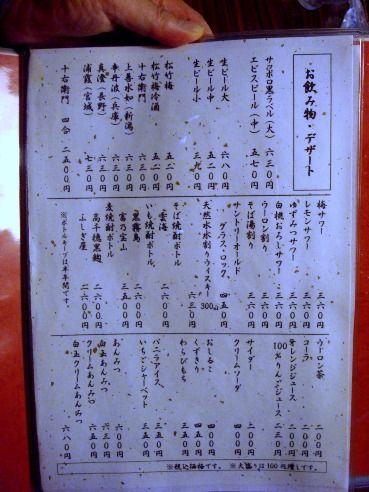 お飲み物・デザート
サッポロ黒ラベル(大) 六三〇円
エビスビール(中) 五七〇円
生ビール大 六八〇円
生ビール中 五二〇円
生ビール小 三九〇円
松竹梅
松竹梅冷酒
十右衛門
上善水如(新潟) 六三〇円
幸丹波(兵庫) 六三〇円
真澄(長野) 七三〇円
浦霞(宮城) 七三〇円
十右衛門 四合 二五〇〇円
梅サワー 三六〇円
レモンサワー 三六〇円
ゆずみつサワー 三六〇円
白桃おろしサワー 三六〇円
ウーロン割り 三六〇円
そば湯割り 三六〇円
サントリーオールド
グラス・ロック 四五〇円
天然水水割りウイスキー 300ml 六三〇円
そば焼酎ボトル
雲海 二六〇〇円
いも焼酎ボトル
黒霧島 二六〇〇円
富乃宝山 三五〇〇円
麦焼酎ボトル
高千穂黒麹 二六〇〇円
ふしぎ屋 二六〇〇円
※ボトルキープは半年間です。
ウーロン茶 二〇〇円
コーラ 二〇〇円
オレンジジュース 二〇〇円
100%りんごジュース 二三〇円
サイダー 二〇〇円
クリームソーダ 四五〇円
おしるこ
くずきり
わらびもち
バニラアイス
いちごシャーベット 三五〇円
あんみつ
白玉あんみつ
クリームあんみつ
白玉クリームあんみつ 六八〇円
※税込価格です。 ※大盛りは100円増しです。